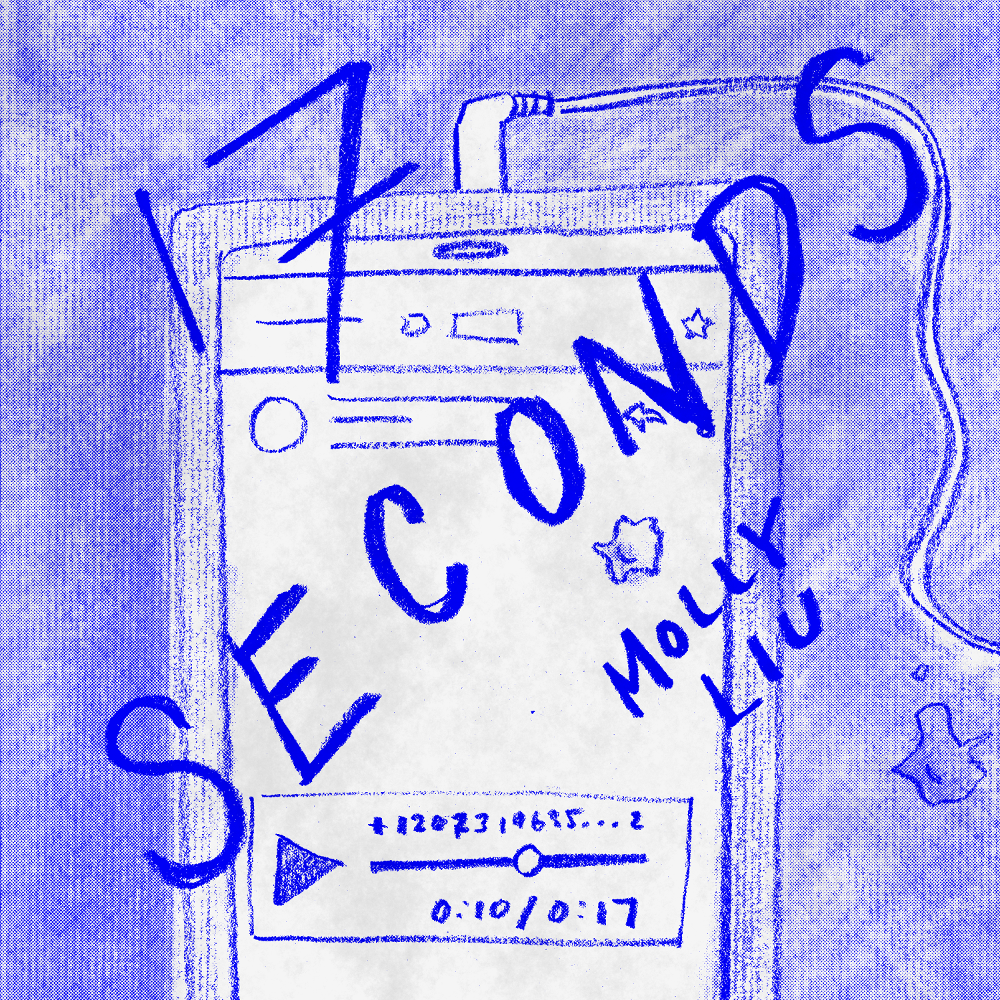 17
SECONDS
MOLLY
LIU
+12073196255...2
0:10/0:17